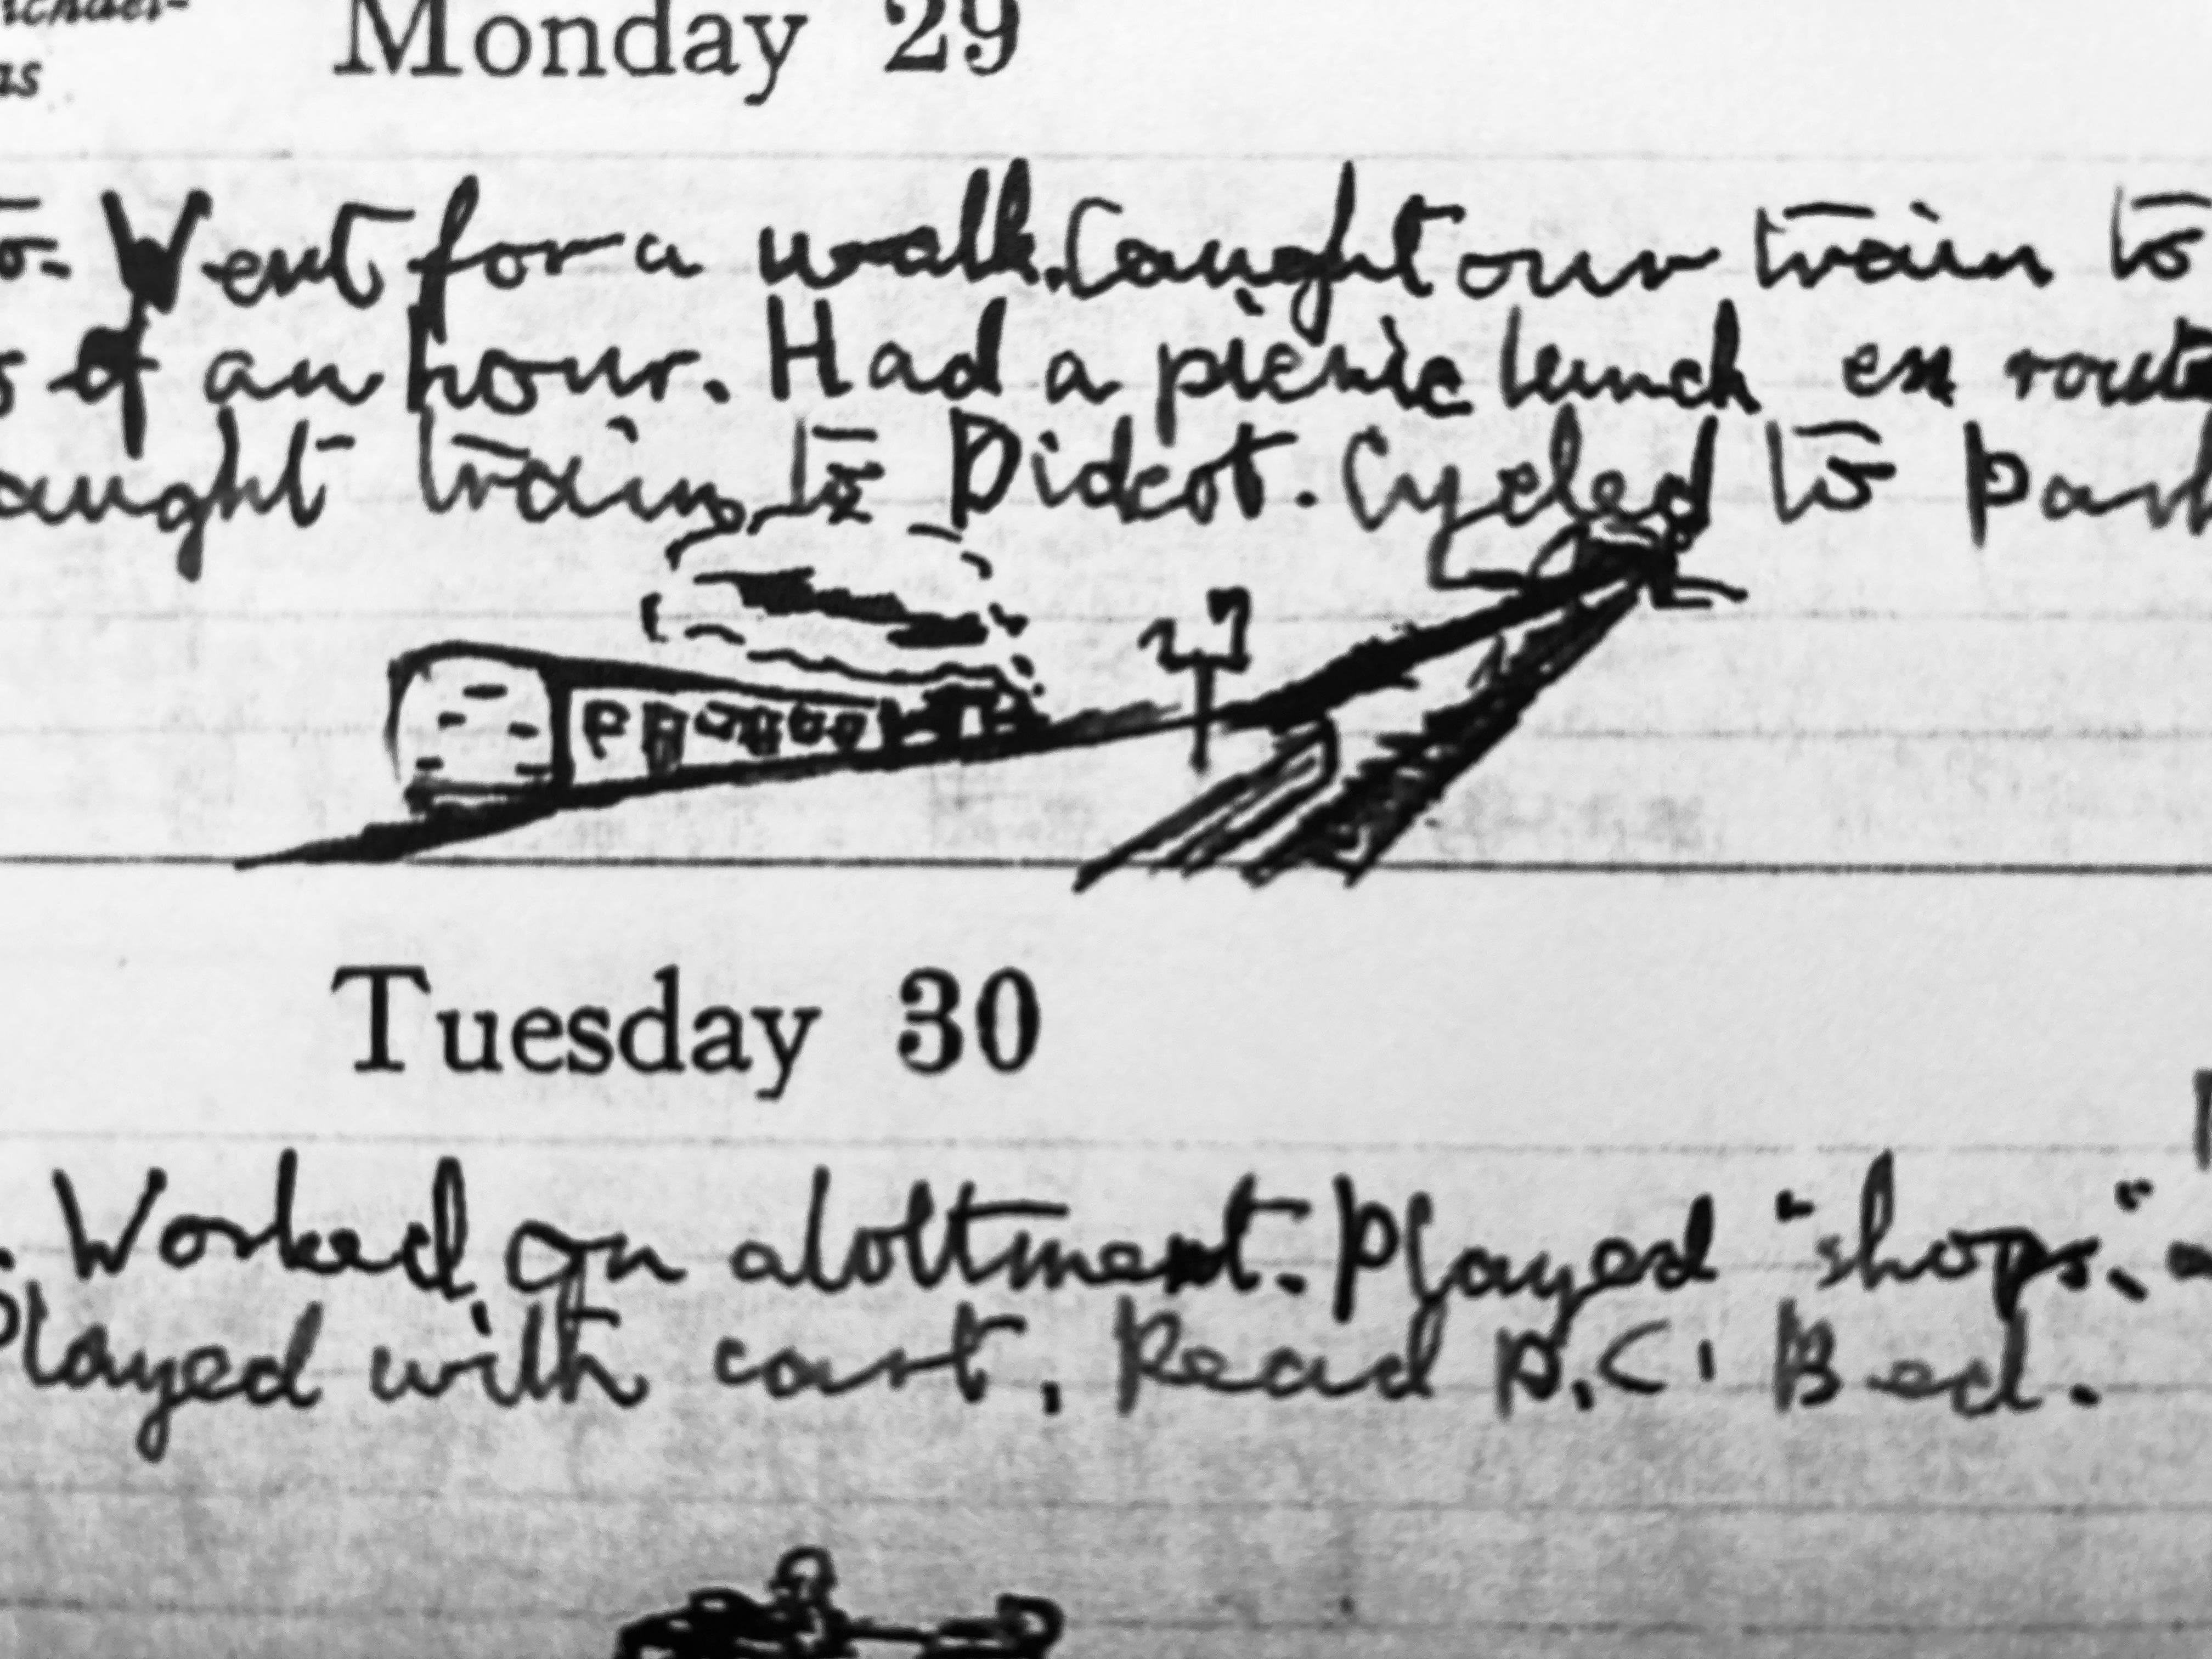 Michael-
as Monday 29
to. Went for a walk. Caught our train to
s of an hour. Had a picnic lunch en route
aught train to Didcot. Cycled to Park
Tuesday 30
. Worked on alottment. Played "shops."
Played with cart. Read D.C. Bed.